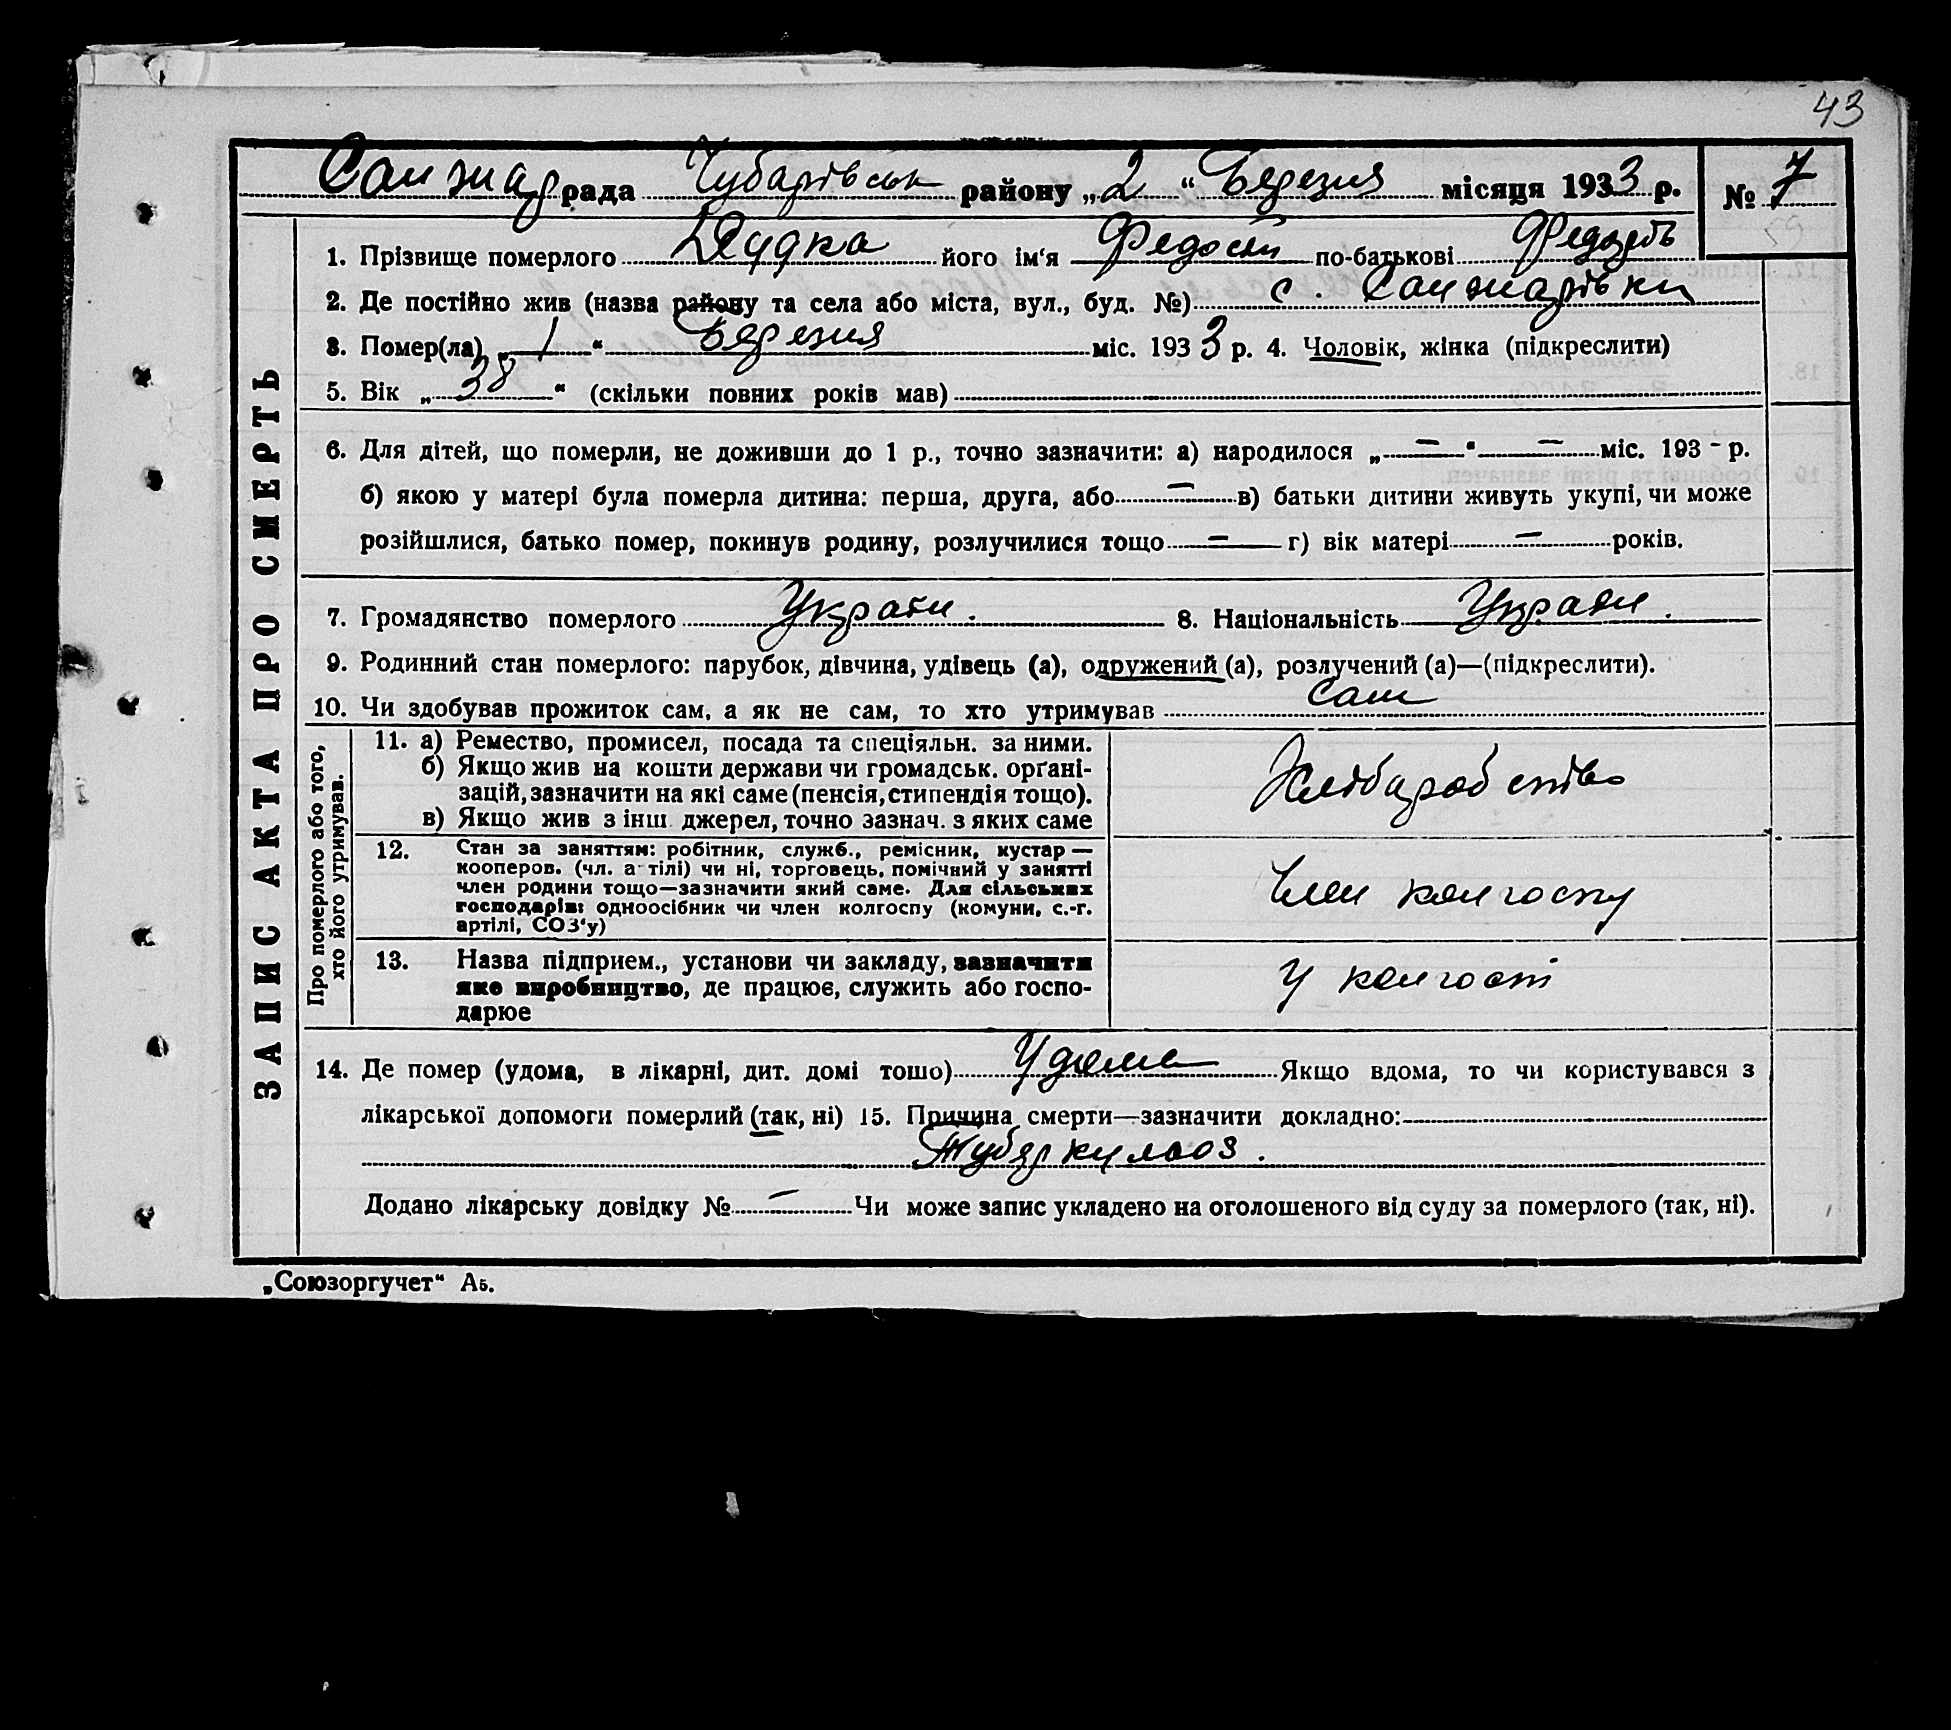 43
Санжар рада Чубарівськ району „2“ Березня місяця 1933 р. № 7
1. Прізвище померлого Дудка його ім‘я Федосій по-батькові
2. Де постійно жив (назва району та села або міста, вул., буд. №) с. Санжарівки
3. Помер(ла) „1“ Березня міс. 1933 р. 4. Чоловік, жінка (підкреслити)
5. Вік „38“ (скільки повних років мав)
6. Для дітей, що померли, не доживши до 1 р., точно зазначити: а) народилося „—“ — міс. 193 - р.
б) якою у матері була померла дитина: перша, друга, або — в) батьки дитини живуть укупі, чи може
розійшлися, батько помер, покинув родину, розлучилися тощо — г) вік матері — років.
7. Громадянство померлого Україн. 8. Національність Україн.
9. Родинний стан померлого: парубок, дівчина, удівець (а), одружений (а), розлучений (а)—(підкреслити).
10. Чи здобував прожиток сам, а як не сам, то хто утримував сам
ЗАПИС АКТА ПРО СМЕРТЬ
Про померлого або того,
хто його утримував.
11. а) Ремество, промисел, посада та спеціяльн. за ними.
б) Якщо жив на кошти держави чи громадськ. орґані-
зацій, зазначити на які саме (пенсія, стипендія тощо).
в) Якщо жив з інш. джерел, точно зазнач. з яких саме
Хлібаробство
12. Стан за заняттям: робітник, служб., ремісник, кустар —
кооперов. (чл. а тілі) чи ні, торговець, помічний у занятті
член родини тощо—зазначити який саме. Для сільських
господарів: одноосібник чи член колгоспу (комуни, с.-г.
артілі, СОЗ‘у)
Член колгоспу
13. Назва підприєм., установи чи закладу, зазначити
яке виробництво, де працює, служить або госпо-
дарює
У колгоспі
14. Де помер (удома, в лікарні, дит. домі тощо) Удома Якщо вдома, то чи користувався з
лікарської допомоги померлий (так, ні) 15. Причина смерти—зазначити докладно:
Туберкульоз.
Додано лікарську довідку № — Чи може запис укладено на оголошеного від суду за померлого (так, ні).
„Союзоргучет“ А5.